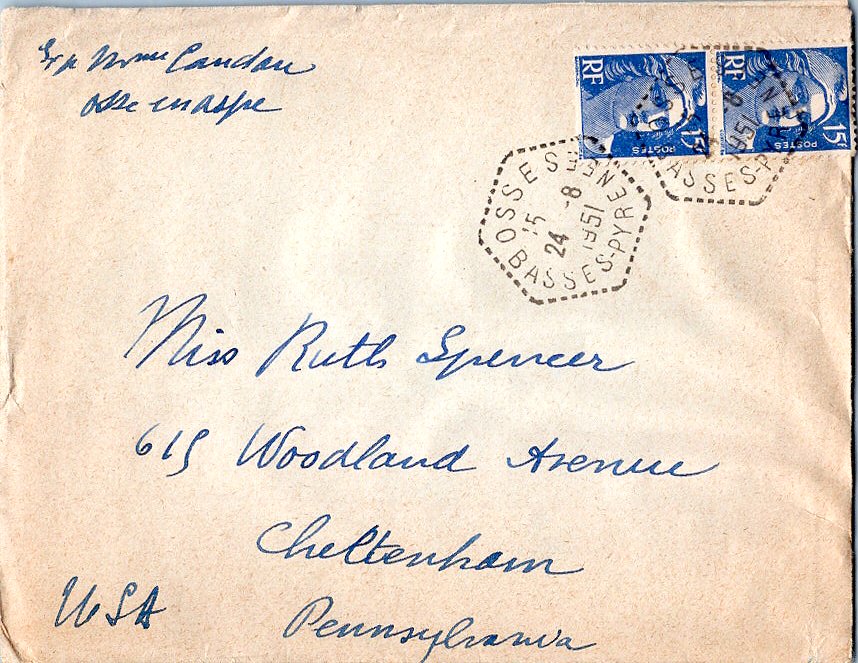 Mme Candau
Osse en aspe
RF
15F
POSTES
RF
15F
POSTES
OSSES
BASSES-PYRENEES
15
24 -8
1951
BASSES-PYRENEES
8
1951
Miss Ruth Spencer
615 Woodland Avenue
Cheltenham
USA
Pennsylvania